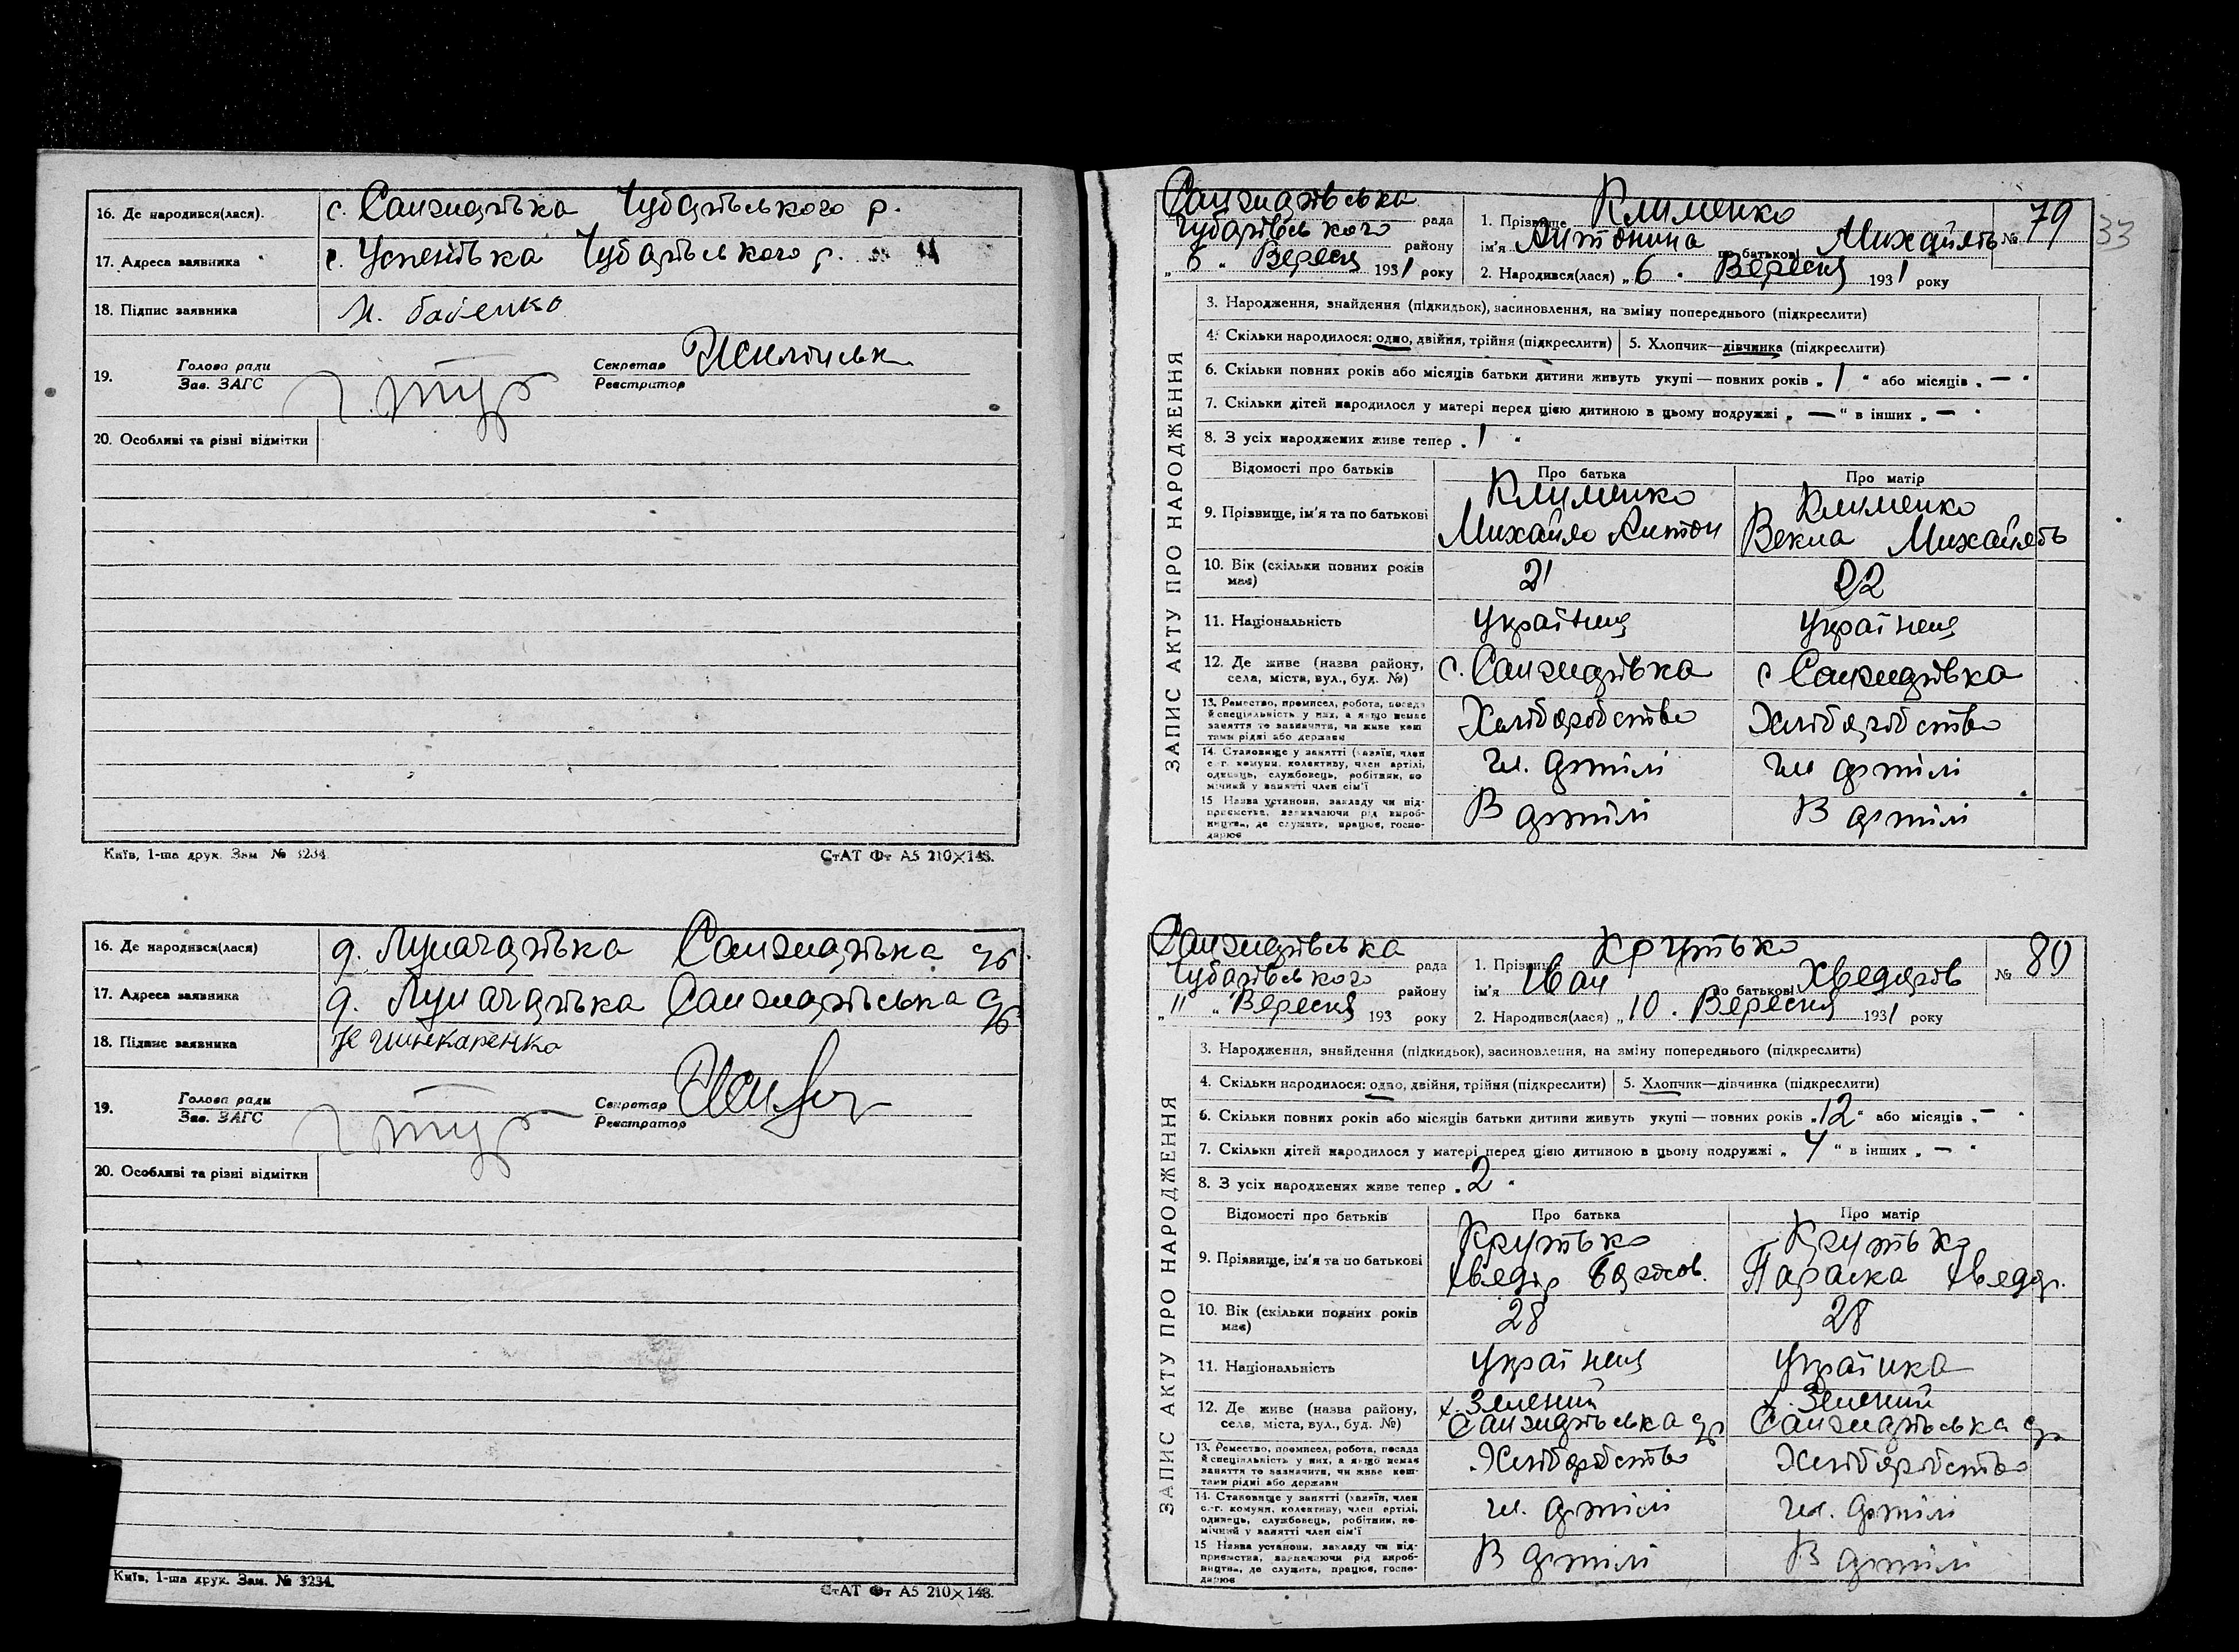 16. Де народився(лася).
с. Санжарівка Чубарівського р.
17. Адреса заявника
с. Успенівка Чубарівського р.
18. Підпис заявника
19.
Голова ради
Зав. ЗАГС
Секретар
Реєстратор
20. Особливі та різні відмітки
Київ, 1-ша друк. Зам № 3234
СтАТ Фт А5 210×148.
16. Де народився(лася)
17. Адреса заявника
18. Підпис заявника
Шинкаренко
19.
Голова ради
Зав. ЗАГС
Секретар
Реєстратор
20. Особливі та різні відмітки
Київ, 1-ша друк. Зам. № 3234.
СтАТ Фт А5 210×148.
33
ЗАПИС АКТУ ПРО НАРОДЖЕННЯ
Санжарівська рада
Чубарівського району
„6“ Вересня 1931 року
1. Прізвище Клименко
ім'я Антонина по батькові Михайлів № 79
2. Народився(лася) „6. Вересня 1931 року
3. Народження, знайдення (підкидьок), засиновлення, на зміну попереднього (підкреслити)
4. Скільки народилося: одно, двійня, трійня (підкреслити) 5. Хлопчик—дівчинка (підкреслити)
6. Скільки повних років або місяців батьки дитини живуть укупі — повних років „1“ або місяців „—“
7. Скільки дітей народилося у матері перед цією дитиною в цьому подружжі „—“ в інших „—“
8. З усіх народжених живе тепер „1“
Відомості про батьків Про батька Про матір
9. Прізвище, ім'я та по батькові
Клименко Клименко
Михайло Антон Векла Михайлів
10. Вік (скільки повних років має) 21 22
11. Національність Українец Українец
12. Де живе (назва району, села, міста, вул., буд. №) с. Санжарівка с Санжарівка
13. Ремество, промисел, робота, посада й спеціяльність у них, а якщо немає заняття то зазначити, чи живе коштами рідні або держави
Хліборобство Хліборобство
14. Становище у занятті (хазяїн, член с.-г. комуни, колективу, член артілі, одинець, службовець, робітник, помічний у занятті член сім'ї
чл. артілі чл артілі
15 Назва установи, закладу чи підприємства, зазначаючи рід виробництва, де служить, працює, господарює
В артілі В артілі
ЗАПИС АКТУ ПРО НАРОДЖЕННЯ
Санжарівська рада
Чубарівського району
„11“ Вересня 193 року
1. Прізвище Крутько
ім'я Іван по батькові Хведорів № 80
2. Народився(лася) „10. Вересня 1931 року
3. Народження, знайдення (підкидьок), засиновлення, на зміну попереднього (підкреслити)
4. Скільки народилося: одно, двійня, трійня (підкреслити) 5. Хлопчик—дівчинка (підкреслити)
6. Скільки повних років або місяців батьки дитини живуть укупі — повних років „12“ або місяців „—“
7. Скільки дітей народилося у матері перед цією дитиною в цьому подружжі „4“ в інших „—“
8. З усіх народжених живе тепер „2“
Відомості про батьків Про батька Про матір
9. Прізвище, ім'я та по батькові
Крутько Крутько
Хведір Параска Хведор.
10. Вік (скільки повних років має) 28 28
11. Національність Українец Українка
12. Де живе (назва району, села, міста, вул., буд. №)
х. Зелений х. Зелений
Санжарівська Санжарівська
13. Ремество, промисел, робота, посада й спеціяльність у них, а якщо немає заняття то зазначити, чи живе коштами рідні або держави
Хліборобство Хліборобство
14. Становище у занятті (хазяїн, член с.-г. комуни, колективу, член артілі, одинець, службовець, робітник, помічний у занятті член сім'ї
чл. артілі чл. артілі
15 Назва установи, закладу чи підприємства, зазначаючи рід виробництва, де служить, працює, господарює
В артілі В артілі